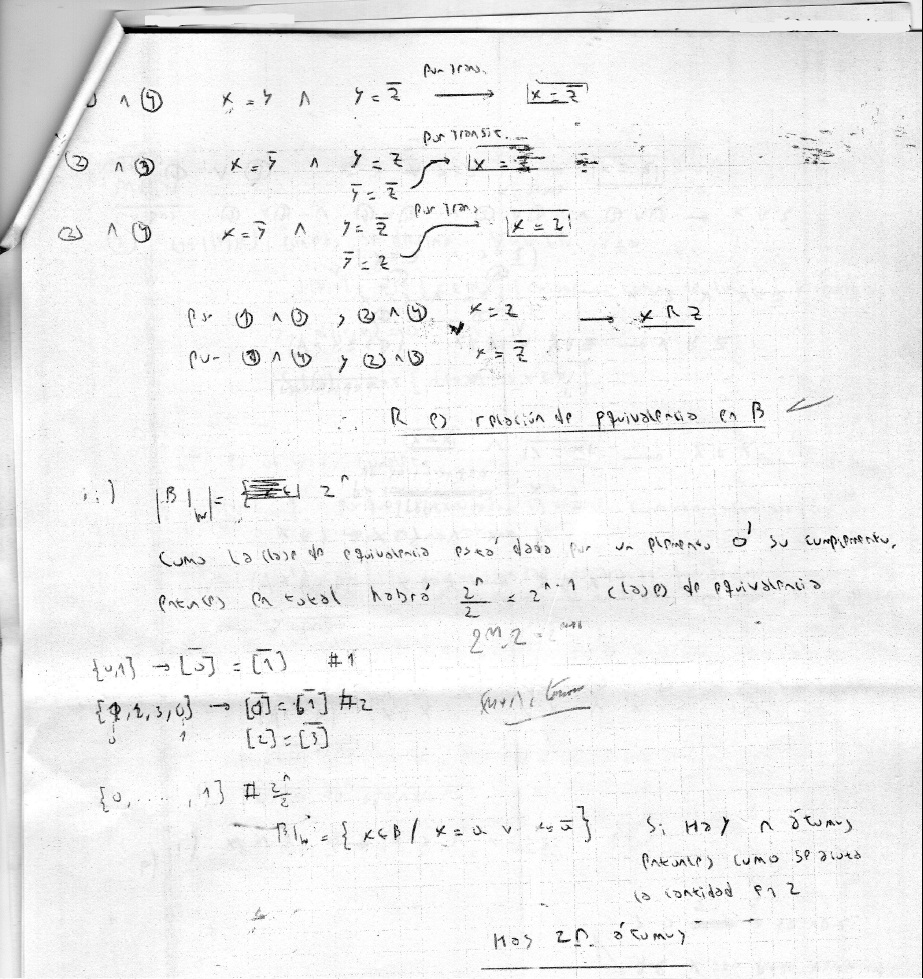 ∧ ④ x = y ∧ y = z̄ Por Trans. → x = z̄
② ∧ ③ x = ȳ ∧ y = z Por Transit. x =
ȳ = z̄
② ∧ ④ x = ȳ ∧ y = z̄ Por Tran. x = z
ȳ = z
Por ① ∧ ③ y ② ∧ ④ x = z → x R z
Por ① ∧ ④ y ② ∧ ③ x = z̄
∴ R es relación de equivalencia en B
ii) |B|= 2ⁿ
Como la clase de equivalencia está dada por un elemento ó su complemento,
entonces en total habrá 2ⁿ/2 = 2ⁿ⁻¹ clases de equivalencia
{0,1} → [0] = [1] #1
{1,2,3,0} → [0] = [1] #2
0 1 [2] = [3]
{0, ....., 1} # 2ⁿ/2
= {x∈B / x = a ∨ x = ā} Si Hay n átomos
entonces como se acota
la cantidad en 2
Hay 2n átomos